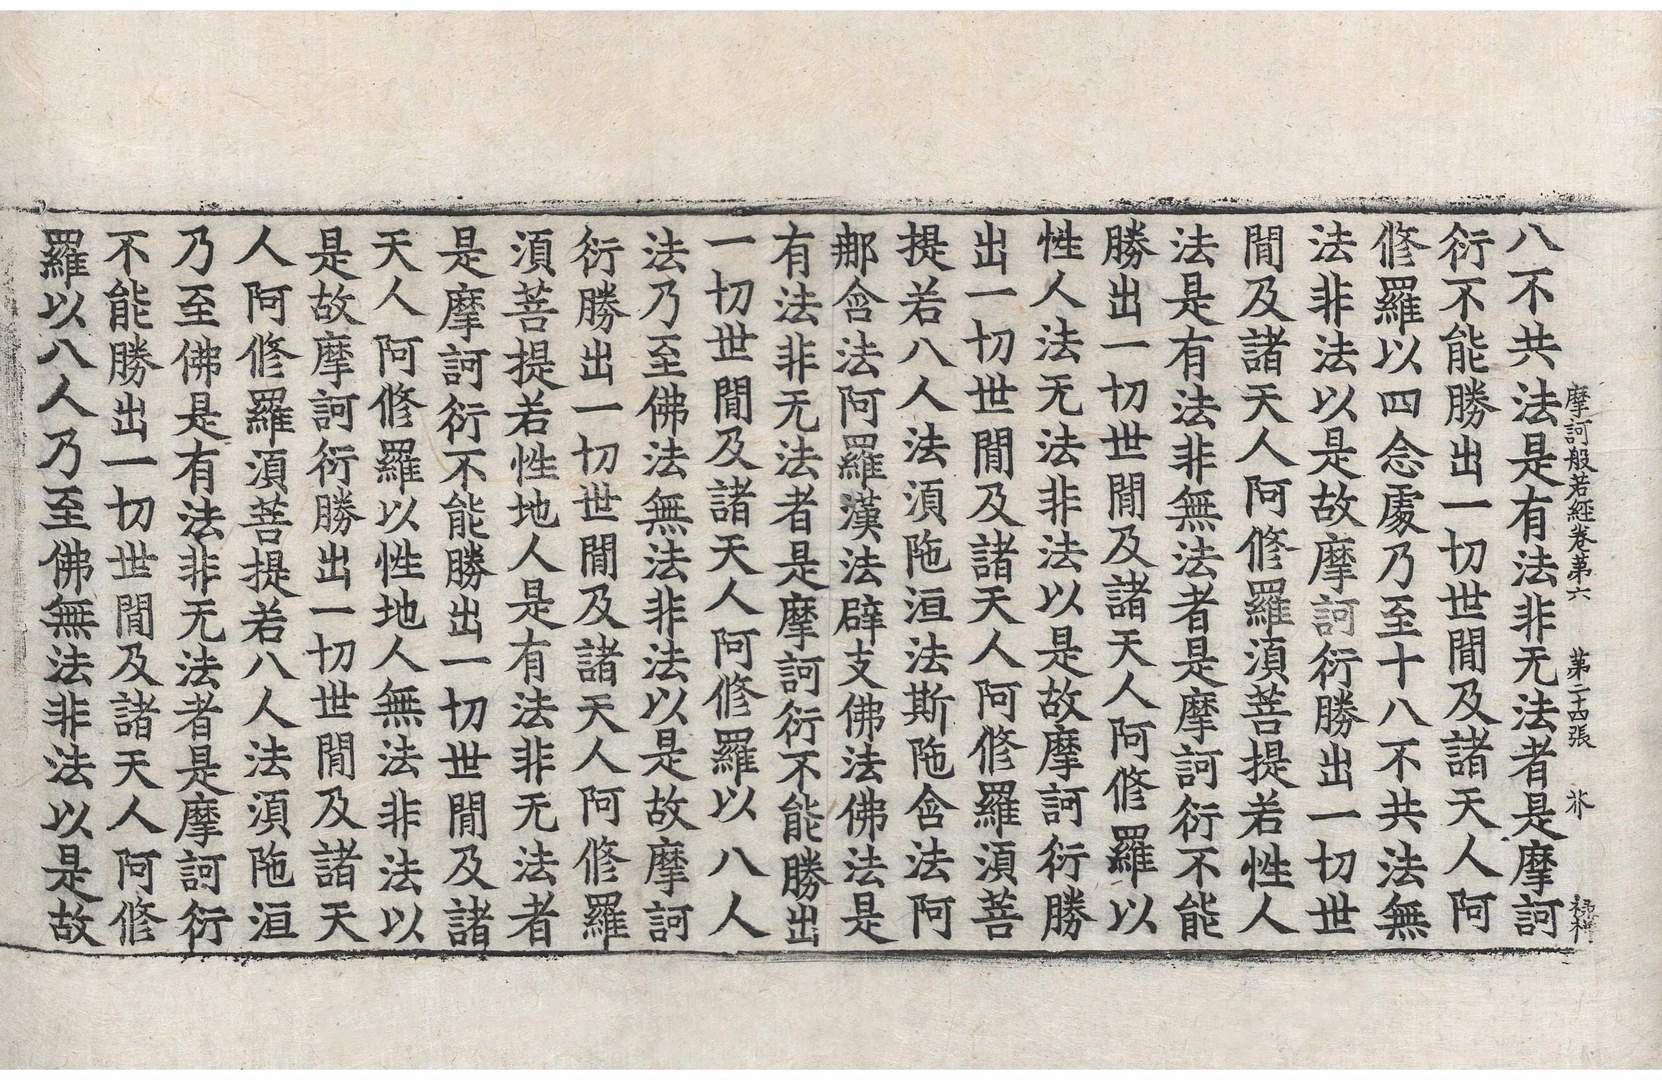 摩訶般若經卷第六 第二十四張 芥
八不共法是有法非无法者是摩訶
衍不能勝出一切世閒及諸天人阿
修羅以四念處乃至十八不共法無
法非法以是故摩訶衍勝出一切世
閒及諸天人阿修羅須菩提若性人
法是有法非無法者是摩訶衍不能
勝出一切世閒及諸天人阿修羅以
性人法无法非法以是故摩訶衍勝
出一切世閒及諸天人阿修羅須菩
提若八人法須陁洹法斯陁含法阿
那含法阿羅漢法辟支佛法佛法是
有法非无法者是摩訶衍不能勝出
一切世閒及諸天人阿修羅以八人
法乃至佛法無法非法以是故摩訶
衍勝出一切世閒及諸天人阿修羅
須菩提若性地人是有法非无法者
是摩訶衍不能勝出一切世閒及諸
天人阿修羅以性地人無法非法以
是故摩訶衍勝出一切世閒及諸天
人阿修羅須菩提若八人法須陁洹
乃至佛是有法非无法者是摩訶衍
不能勝出一切世閒及諸天人阿修
羅以八人乃至佛無法非法以是故